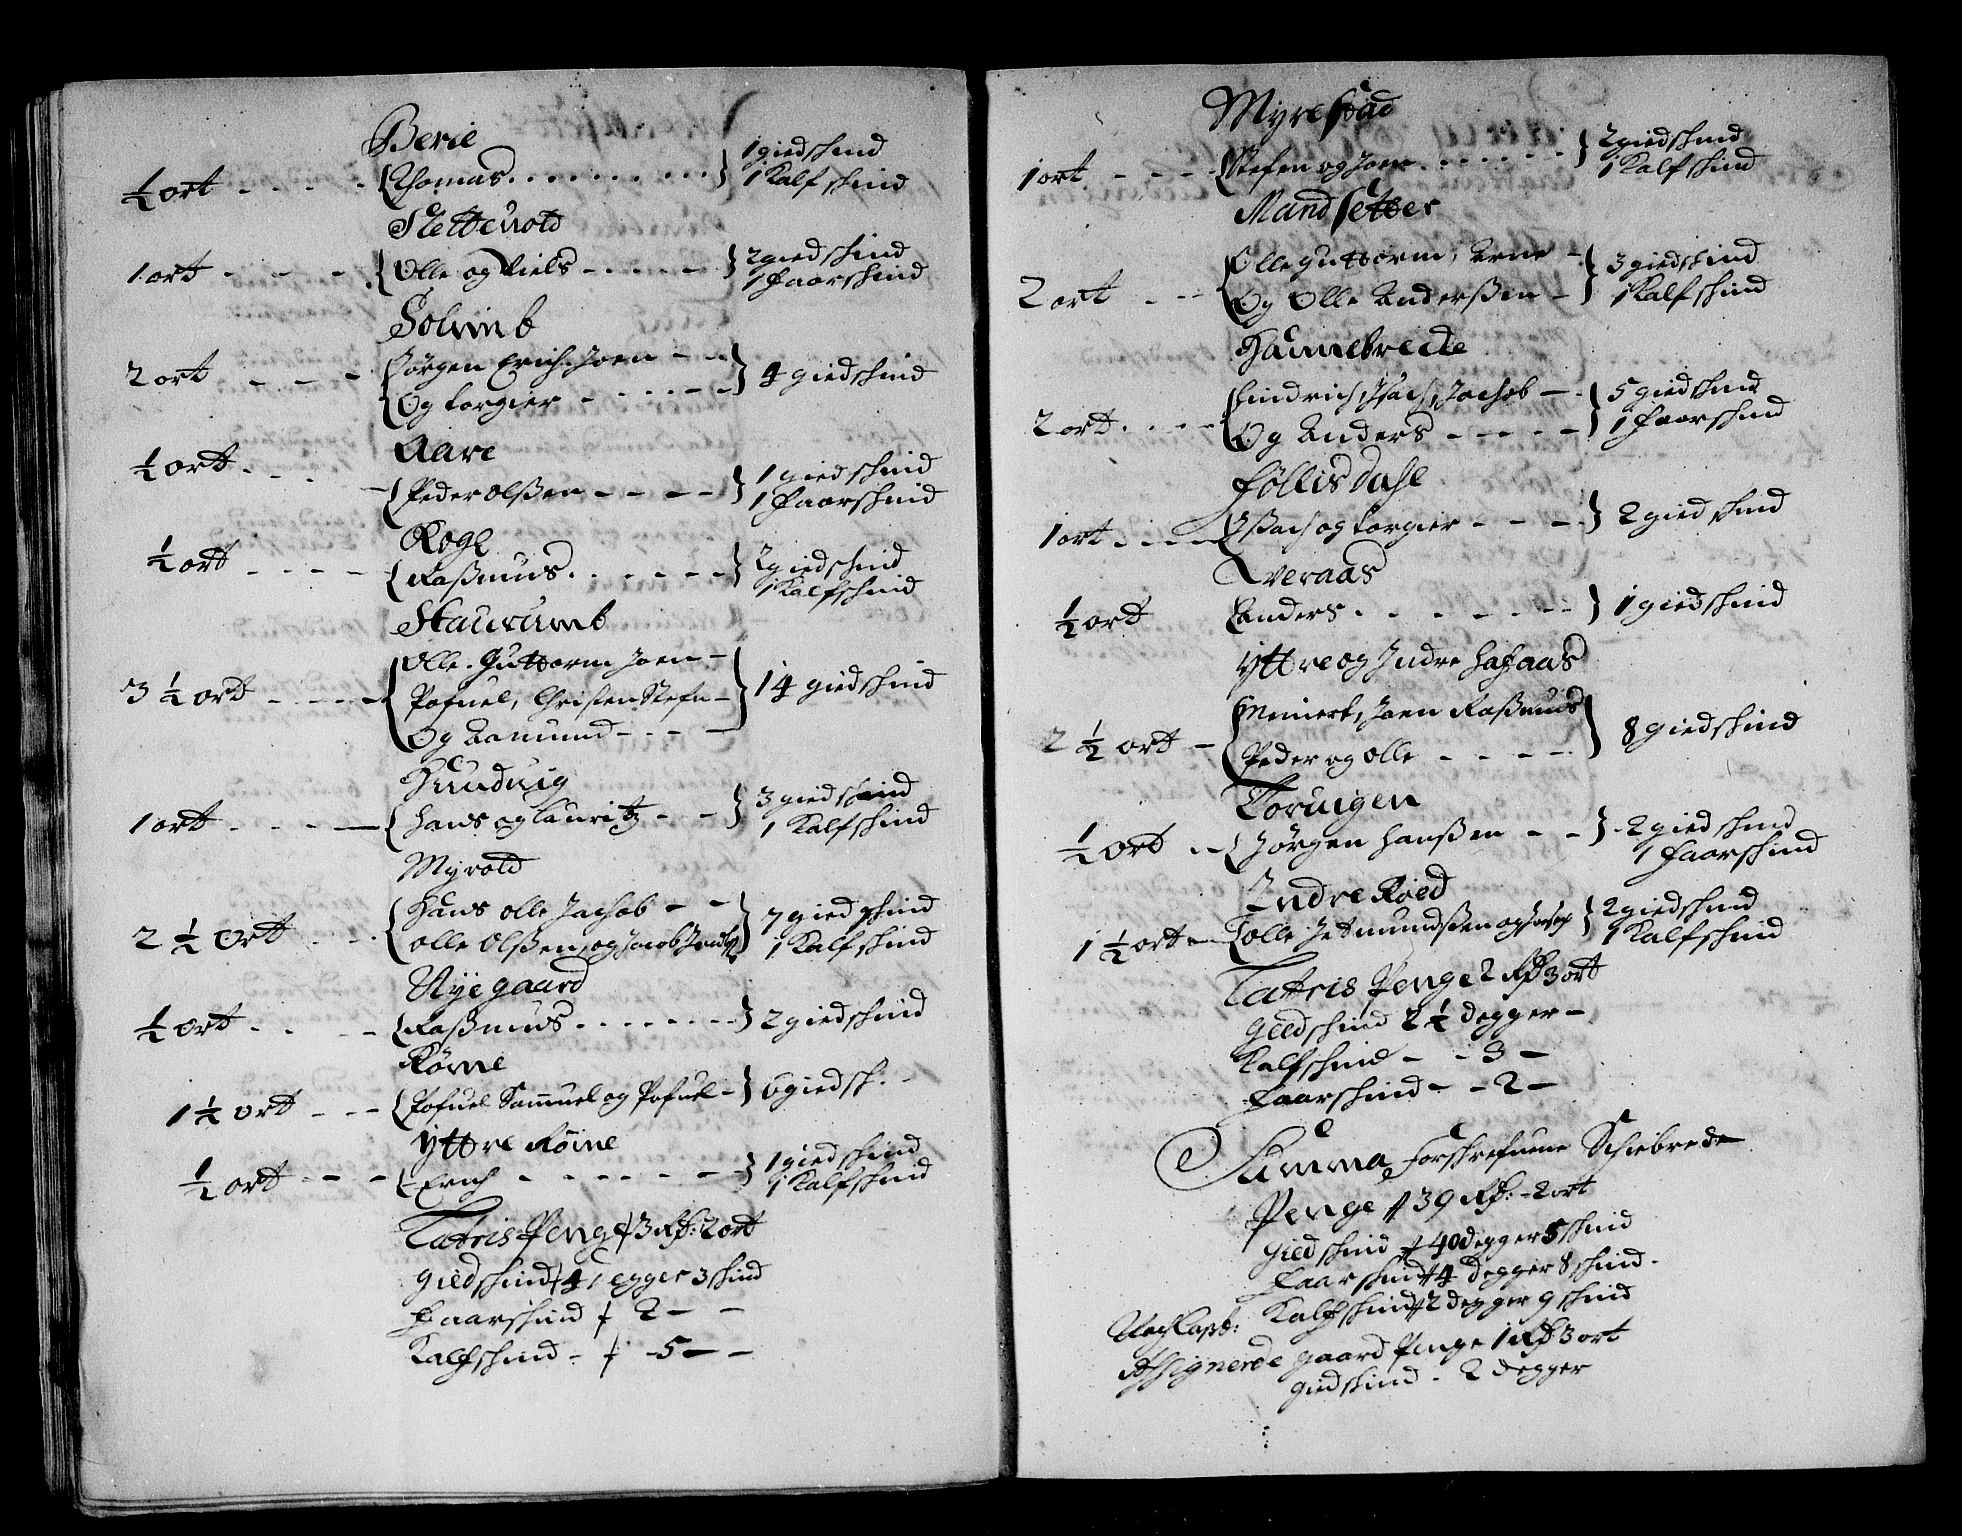 Berie
½ ort - - - - { Thomas. . . . . . . . . } 1 giedskind
1 Kalfskind
Slettevold
1 ort - - - - { Olle og Niels - - - - - } 2 giedskind
1 Faarskind
Solnimb
2 ort - - - { Jørgen Erich Joen - - } 4 giedskind
Og Torgier - - - - - -
Aare
½ ort - - - - { Peder Olßen - - - - } 1 giedskind
1 Faarskind
Rogl
½ ort - - - - { Raßmuus. - - - - - } 2 giedskind
1 Kalfskind
Staurumb
3 ½ ort - - - - { Olle. Guttorm Joen - } 14 giedskind
Pofuel, Christen Stefn -
Og Aamund - - - -
Hunduig
1 ort - - - { Hans og Lauritz - - } 3 giedskind
1 Kalfskind
Myrold
2 ½ ort - - - { Hans Olle Jachob - - } 7 giedskind
Olle Olßen, og Jacob 1 Kalfskind
Nyegaard
½ ort - - - - { Raßmuus - - - - - - } 2 giedskind
Røine
1 ½ ort - - - { Pofuel Samuel og Pofuel - } 6 giedsk:
Yttre Røine
½ ort - - - - { Erich - - - - - - - } 1 giedskind
1 Kalfskind
Latris Penge 3 Rd: 2 ort
Giedskind 4 degger 3 skind
Faarskind 2 - -
Kalfskind - 5 - -
Myrestad
1 ort - - - - { Stefen og Joen - - - - - - } 2 giedskind
1 Kalfskind
Mandsetter
2 ort - - - { Olle Guttorm, Arne - } 3 giedskind
Og Olle Anderßen - 1 Kalfskind
Hannebrecke
2 ort - - - - { Hindrich, Isach, Jachob - } 5 giedskind
Og Anders - - - - - 1 Faarskind
Føllisdahl
1 ort - - - - { Ißach og Torgier - - - - } 2 giedskind
Tveraas
½ ort { Anders - - - - - - - } 1 giedskind
Yttre og Indre Hafaas
2 ½ ort - { Meinert, Joen Raßmuus } 8 giedskind
Peder og Olle - - - -
Toruigen
½ ort - - { Jørgen Hanßen - - } 2 giedskind
1 Faarskind
Indre Røed
1 ½ ort - { Olle Jetmundßen og } 2 giedskind
1 Kalfskind
Latris Penge 2 Rd 3 ort
Giedskind 2 ½ degger -
Kalfskind - - 3 -
Faarskind - - 2 -
Summa Forskrefuene Schibrede
Penge 39 Rd: - 2 ort
Giedskind 40 degger 5 skind
Faarskind 4 degger 8 skind.
Kalfskind 2 degger 9 skind
gaard Penge 1 Rd 3 ort
Giedskind - 2 degger